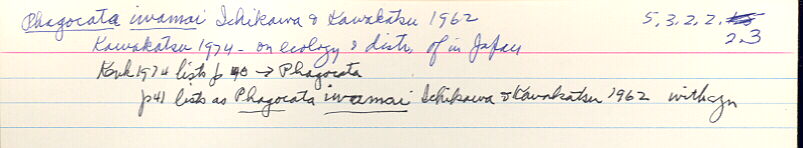 Phagocata iwamai Ichikawa & Kawakatsu 1962 5, 3, 2, 2,
2.3
Kawakatsu 1974 - on ecology & distr. of in Japan
Kenk 1974 lists p 40 → Phagocata
p41 lists as Phagocata iwamai Ichikawa & Kawakatsu 1962 with syn